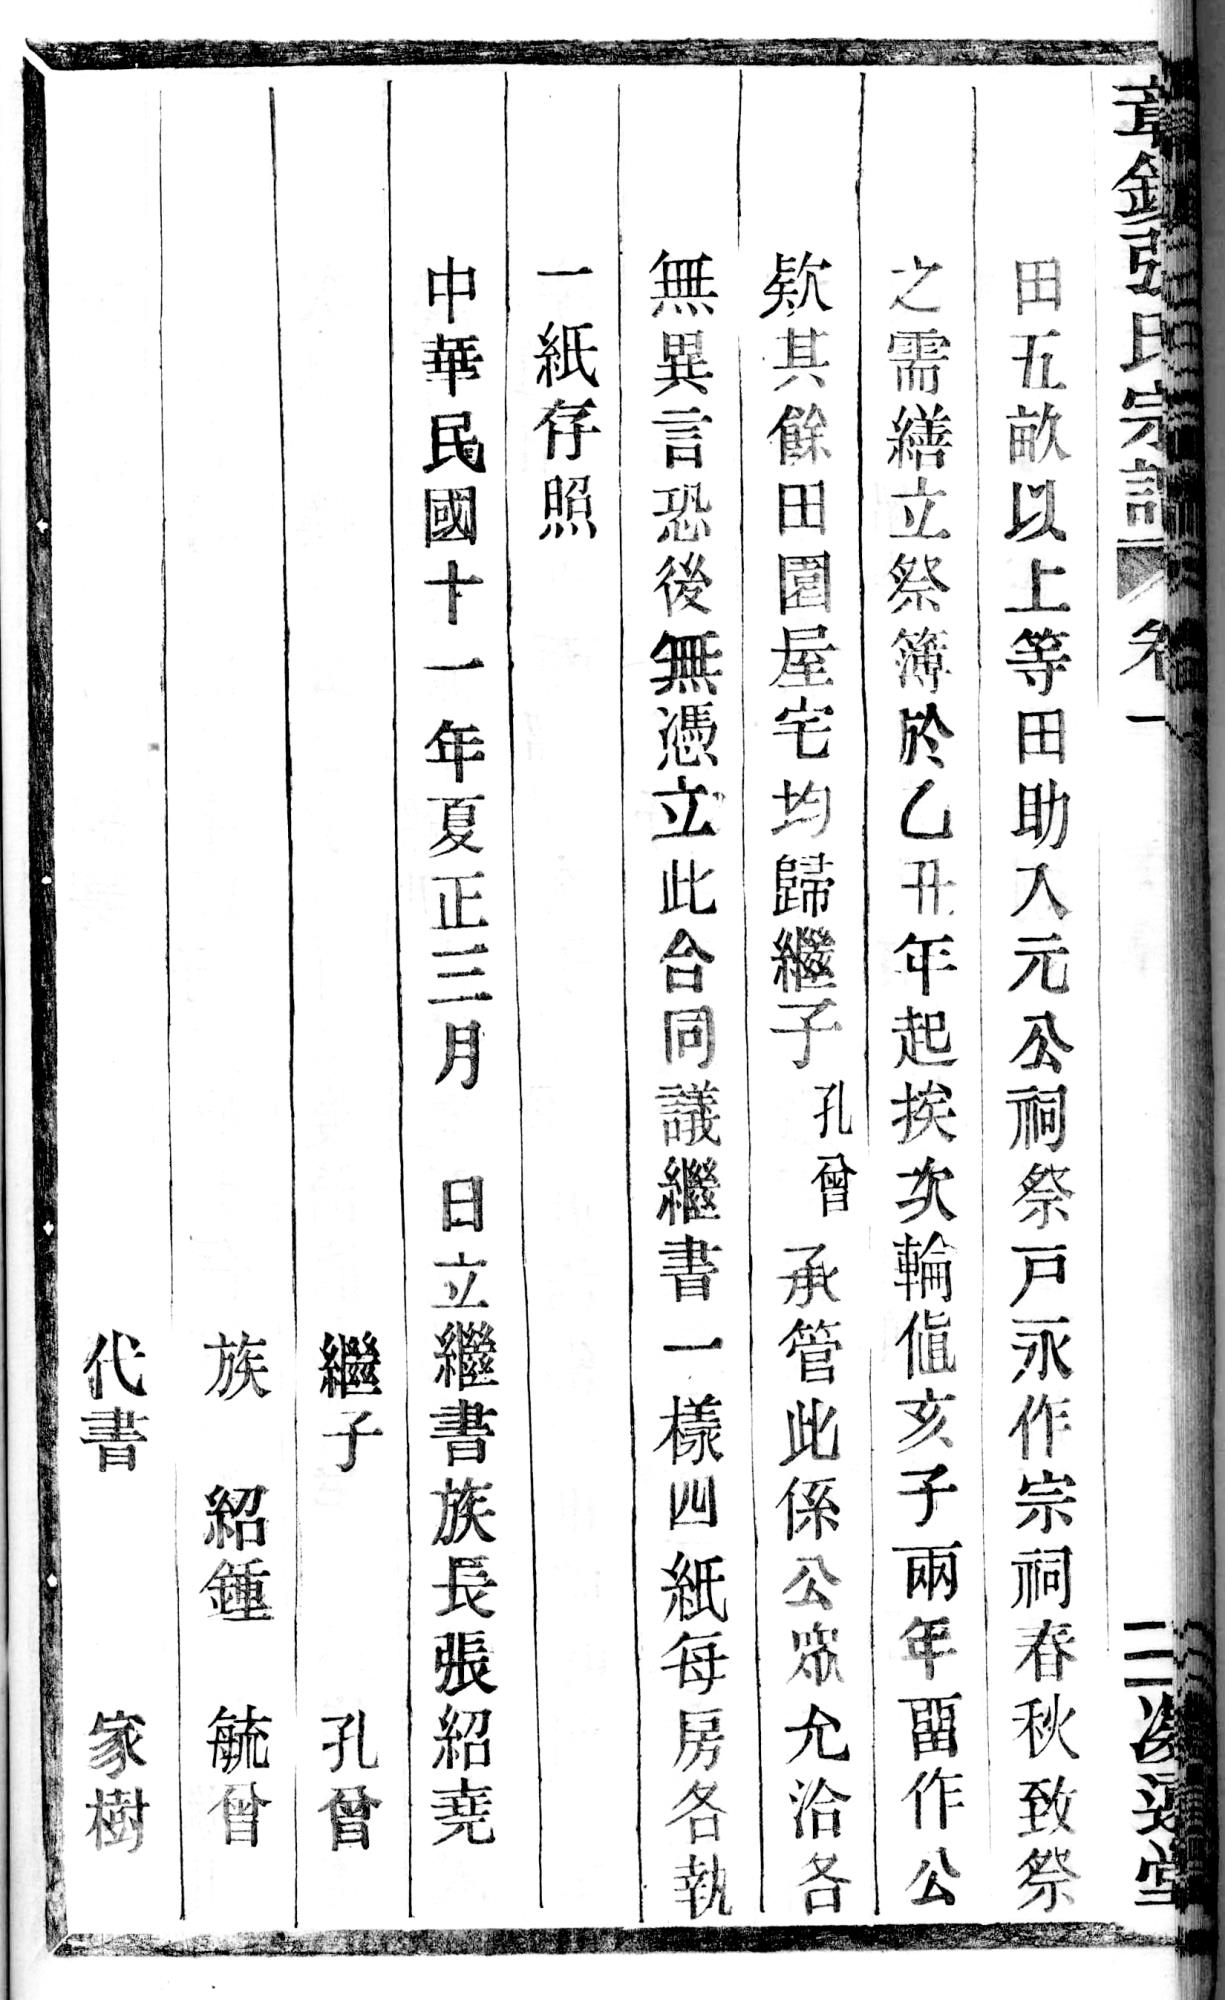 章鎮張氏宗譜 卷一 二 凝遠堂
田五畝以上等田助入元公祠祭戸永作宗祠春秋致祭
之需繕立祭簿於乙丑年起挨次輪值亥子兩年畱作公
欵其餘田園屋宅均歸繼子孔曾承管此係公衆允洽各
無異言恐後無憑立此合同議繼書一樣四紙每房各執
一紙存照
中華民國十一年夏正三月 日立繼書族長張紹堯
繼子 孔曾
族 紹鍾 毓曾
代書 家樹